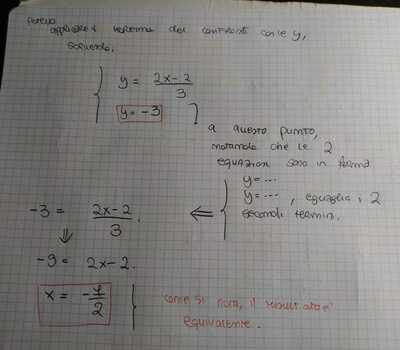 potevo
applicare il teorema del confronto con le y,
scrivendo:
y = 2x-2/3
y = -3
a questo punto,
notando che le 2
equazioni sono in forma
y = ...
y = ... , eguaglia i 2
secondi termini.
-3 = 2x-2/3 . ⇐
⇓
-9 = 2x-2.
x = -7/2
come si nota, il risultato è
equivalente.